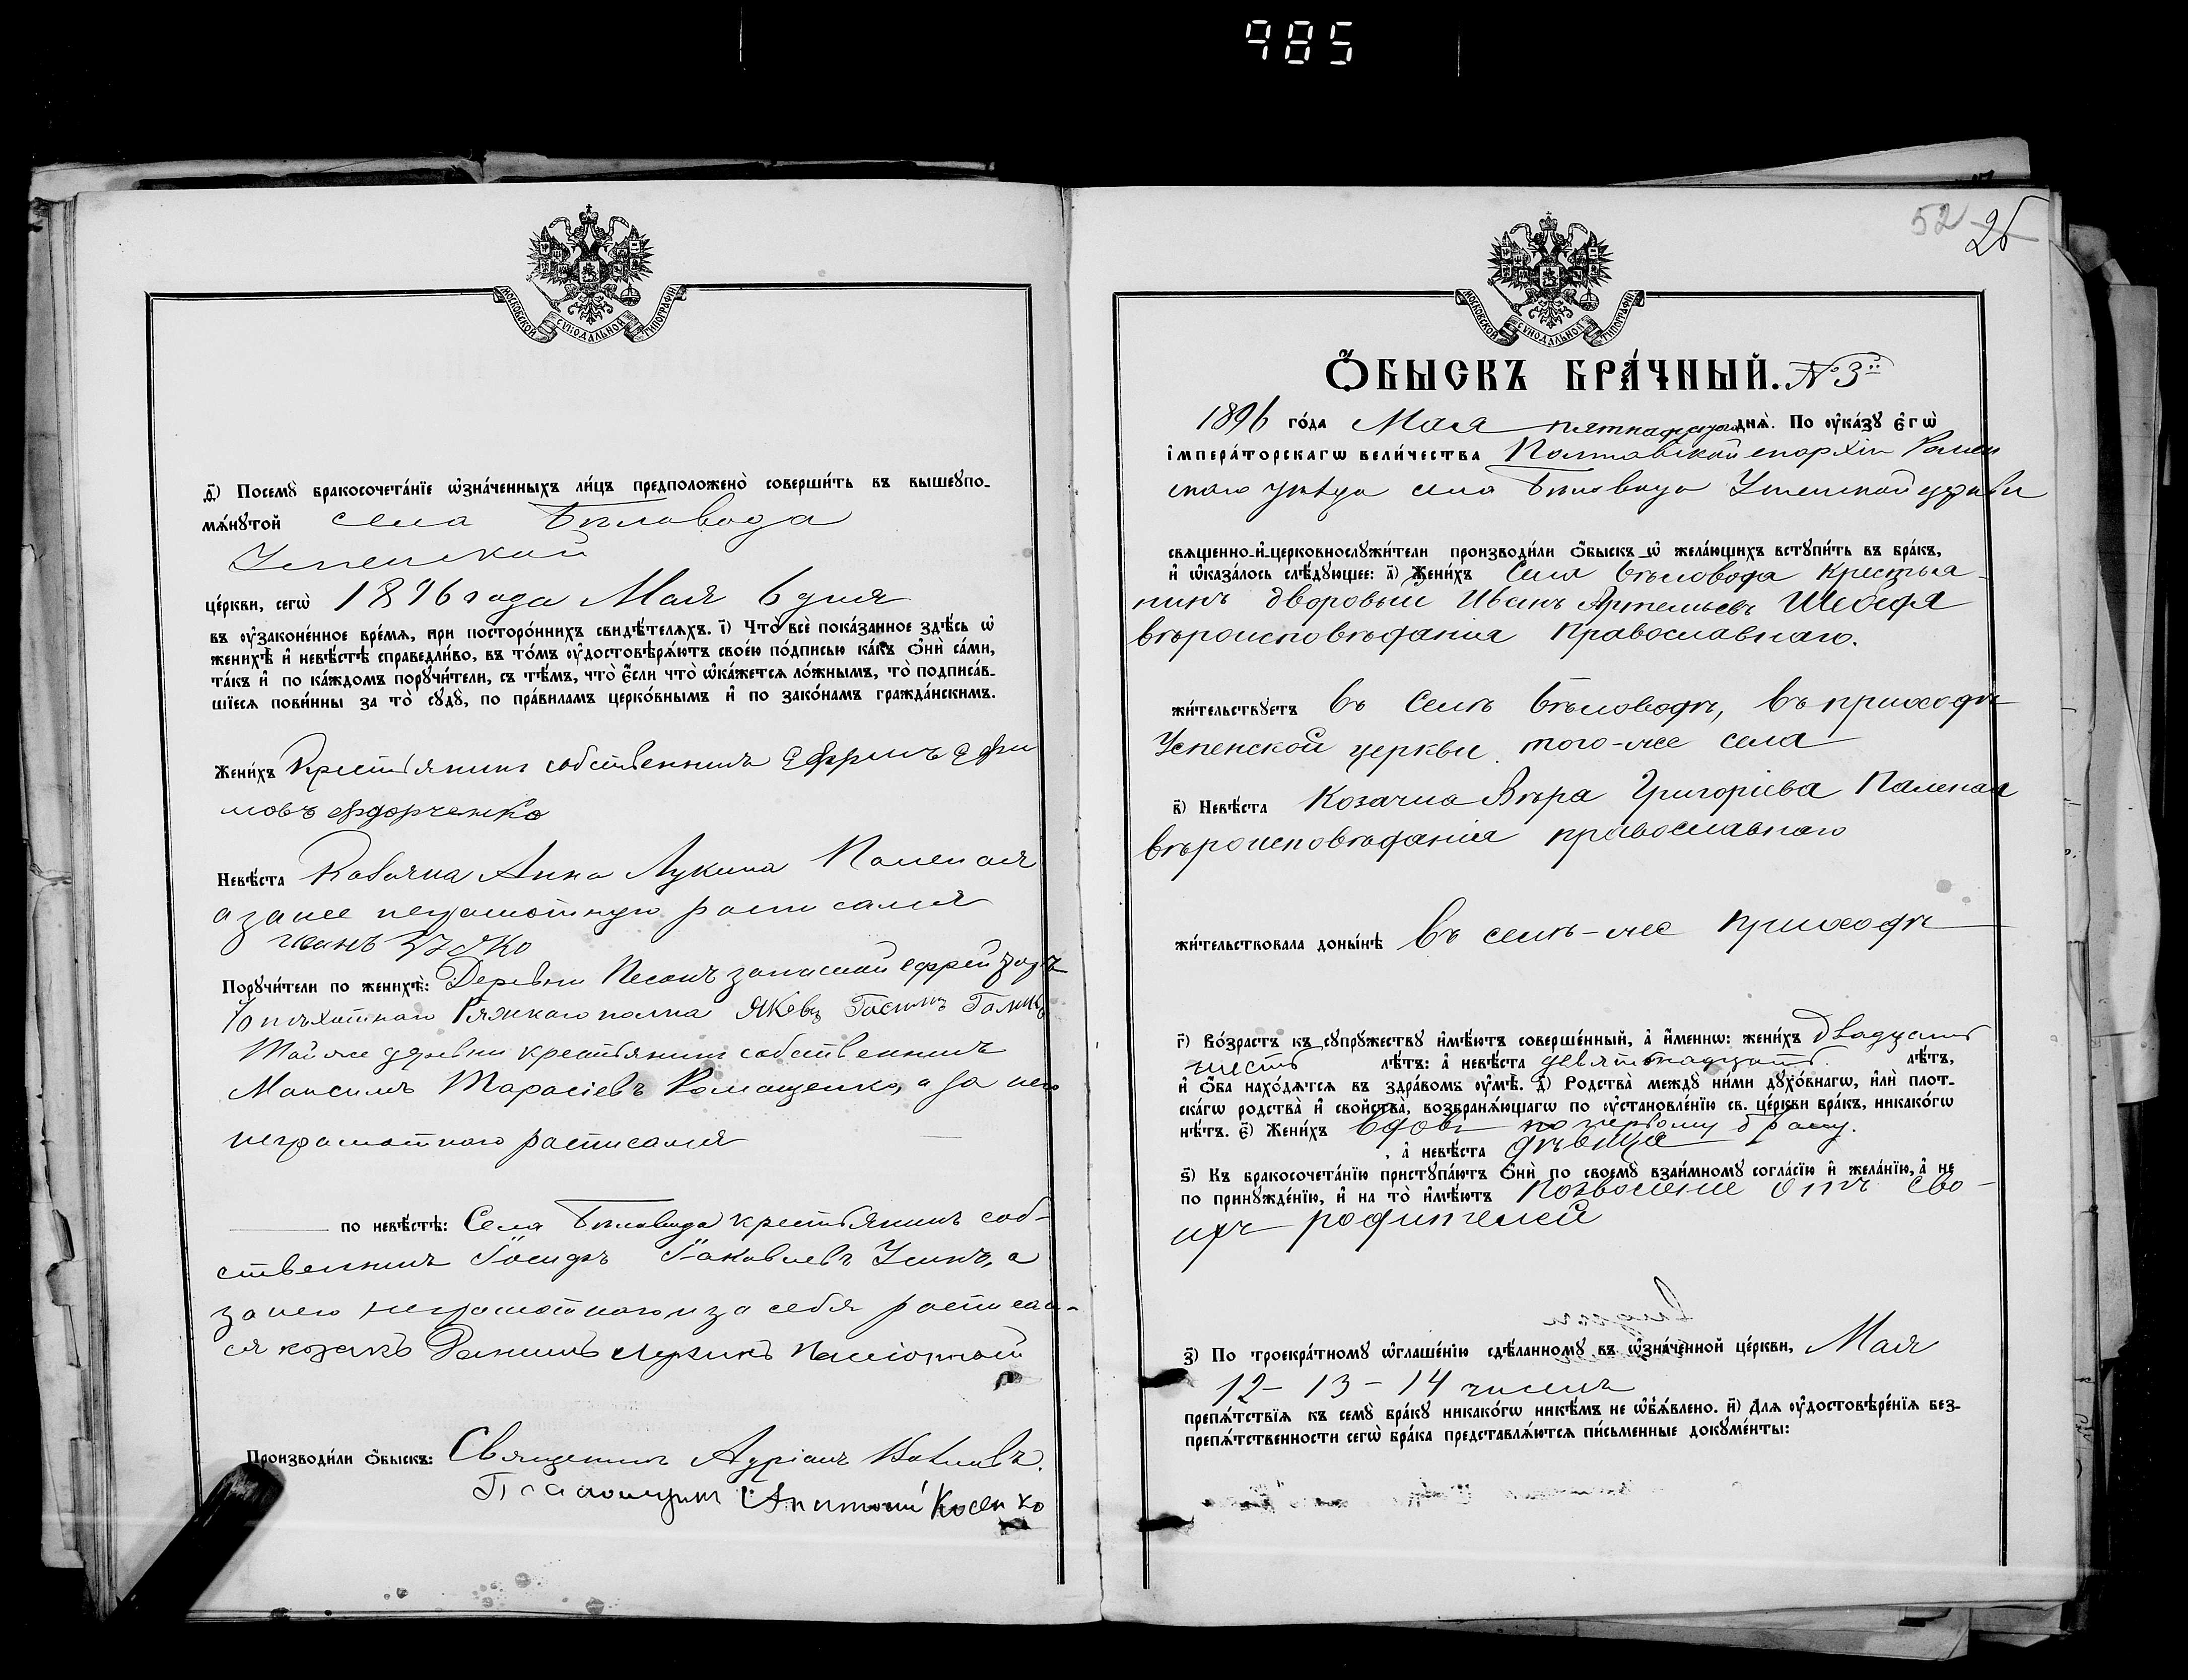 985
МОСКОВСКОЙ СѴНОДАЛЬНОЙ ТИПОГРАФІИ
д҃) Посемꙋ̀ бракосочета́нїе ѡ҆зна́ченныхъ ли́цъ предположено̀ соверши́ть въ вышеꙋпо-
мѧ́нꙋтой села Бѣловода
Успенской
це́ркви, сегѡ̀ 1896 года Мая 6 дня
въ ᲂу҆зако́ненное вре́мѧ, при посторо́ннихъ свидѣ́телѧхъ. і҃) Что̀ всѐ пока́занное здѣ́сь ѡ҆
женихѣ̀ и҆ невѣ́стѣ справедли́во, въ то́мъ ᲂу҆достовѣрѧ́ютъ свое́ю по́дписью ка́къ ѻ҆нѝ са́ми,
та́къ и҆ по ка́ждомъ порꙋчи́тели, съ тѣ́мъ, что̀ є҆́сли что̀ ѡ҆ка́жетсѧ ло́жнымъ, то̀ подписа́в-
шїесѧ пови́нны за то̀ сꙋдꙋ̀, по пра́виламъ церко́внымъ и҆ по зако́намъ гражда́нскимъ.
Жени́хъ Крестьянинъ собственникъ Ефримъ Ефи
мовъ Федорченко
Невѣ́ста Козачка Анна Лукина Паленая
а за нее неграмотную росписался
Порꙋчи́тели по женихѣ̀: Деревни Песокъ запасной ефрейторъ
70 пѣхотнаго Ряжскаго полка Яковъ
Той же деревни крестьянинъ собственникъ
Максимъ Тарасіевъ Ромащенко, а за него
неграмотнаго росписался
по невѣ́стѣ: Села Бѣловода крестьянинъ соб-
ственникъ Іосифъ Іаковлевъ Усикъ, а
за него неграмотнаго и за себя росписал-
ся козакъ Даниилъ Лукинъ Паленый
Производи́ли ѻ҆́быскъ: Священникъ Адріанъ
Псаломщикъ Антоній Косенко
52 26
МОСКОВСКОЙ СѴНОДАЛЬНОЙ ТИПОГРАФІИ
Ѻ҆́БЫСКЪ БРА́ЧНЫЙ. № 3й
1896 го́да Мая пятнадцатаго днѧ̀. По ᲂу҆ка́зꙋ є҆гѡ̀
і҆мпера́торскагѡ вели́чества Полтавской епархіи Ромен
скаго уѣзда села Бѣловода Успенской церкви
свѧще́нно-и҆-церковнослꙋжи́тели производи́ли ѻ҆́быскъ ѡ҆ жела́ющихъ встꙋпи́ть въ бра́къ,
и҆ ѡ҆каза́лось слѣ́дꙋющее: а҃) Жени́хъ Села Бѣловода Крестья-
нинъ дворовый Иванъ Артемьевъ Шебедя
вѣроисповѣданія Православнаго.
жи́тельствꙋетъ въ Селѣ Бѣловодѣ, въ приходѣ
Успенской церкви того-же села
в҃) Невѣ́ста Козачка Вѣра Григоріева Паленая
вѣроисповѣданія православнаго
жи́тельствовала доны́нѣ въ семъ-же приходѣ
г҃) Во́зрастъ къ сꙋпрꙋ́жествꙋ и҆мѣ́ютъ соверше́нный, а҆ и҆́меннѡ: жени́хъ двадцать
шесть лѣ́тъ: а҆ невѣ́ста девятнадцать лѣ́тъ,
и҆ ѻ҆́ба нахо́дѧтсѧ въ здра́вомъ ᲂу҆мѣ̀. д҃) Родства̀ междꙋ̀ ни́ми дꙋхо́внагѡ, и҆лѝ плот-
ска́гѡ родства̀ и҆ свойства̀, возбранѧ́ющагѡ по ᲂу҆становле́нїю св. це́ркви бра́къ, никако́гѡ
нѣ́тъ. є҃) Жени́хъ вдовъ по первому браку.
, а҆ невѣ́ста дѣвица
ѕ҃) Къ бракосочета́нїю пристꙋпа́ютъ ѻ҆нѝ по своемꙋ̀ взаи́мномꙋ согла́сїю и҆ жела́нїю, а҆ не
по принꙋжде́нїю, и҆ на то̀ и҆мѣ́ютъ позволеніе отъ сво-
ихъ родителей
з҃) По троекра́тномꙋ ѡ҆глаше́нїю сдѣ́ланномꙋ въ ѡ҆зна́ченной це́ркви, Мая
12 - 13 - 14 чиселъ
препѧ́тствїѧ къ семꙋ̀ бра́кꙋ никако́гѡ никѣ́мъ не ѡ҆б̾ѧ́влено. и҃) Длѧ ᲂу҆достовѣре́нїѧ без-
препѧ́тственности сегѡ̀ бра́ка представлѧ́ютсѧ пи́сьменные докꙋме́нты: